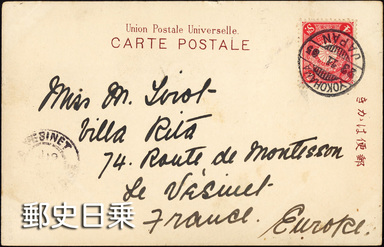 Union Postale Universelle.
CARTE POSTALE
YOKOHAMA
JAPAN
きかは便郵
Miss M. Sirot
Villa Rita
74. Route de Montesson
Le Vésinet
France. Europe.
郵史日乗